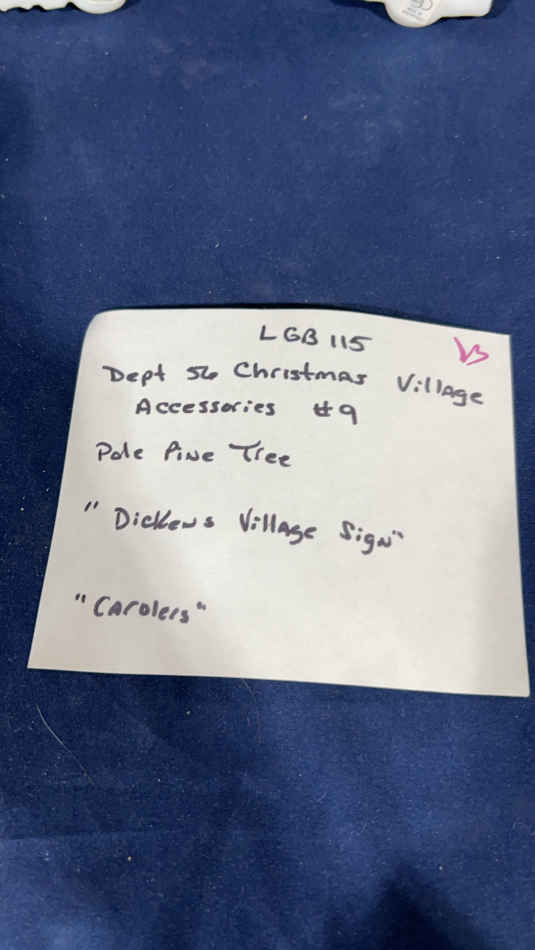 LGB 115
VS
Dept 56 Christmas Village
Accessories #9
Pole Pine Tree
"Dickens Village Sign"
"Carolers"